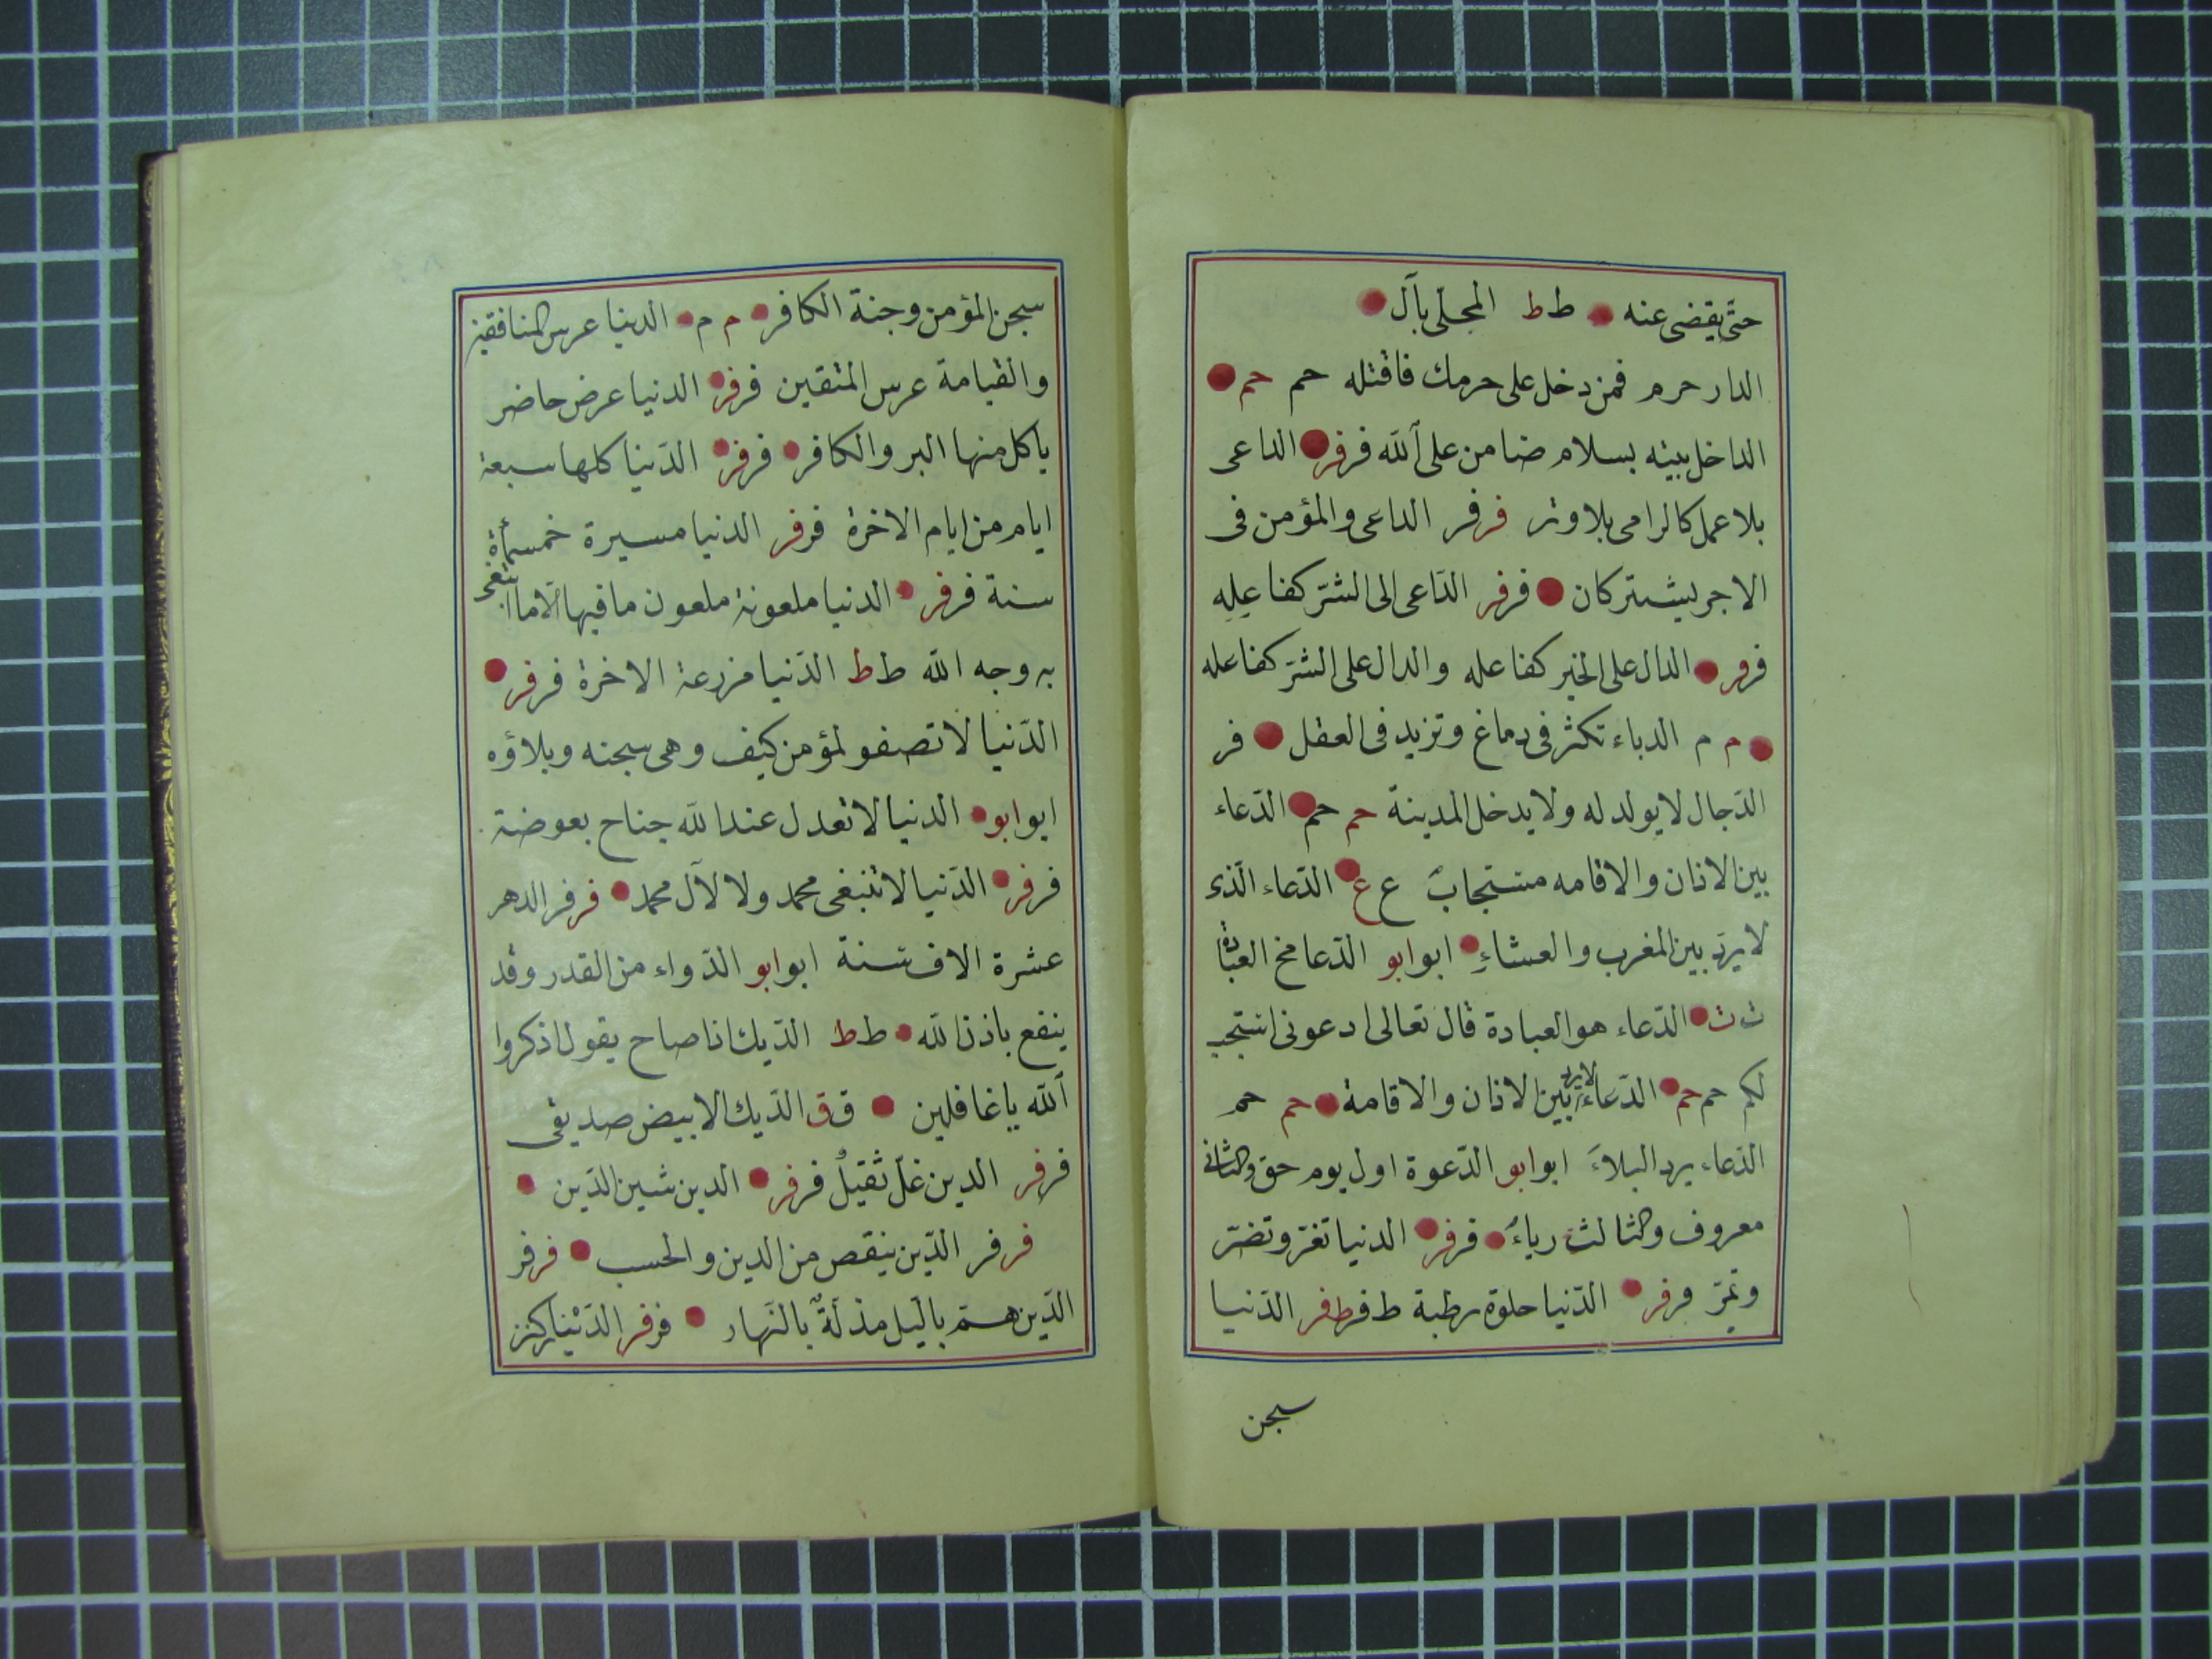 حتى يقضى عنه ط ط المحلى بآل
الدار حرم فمن دخل على حرمك فاقتله حم حم
الداخل بيته بسلام ضامن على الله فر فر الداعى
بلا عمل كالرامى بلا وتر فر فر الداعى والمؤمن فى
الاجر يشتركان فر فر الدّاعى الى الشرّ كفاعله
فر فر الدال على الخير كفاعله والدال على الشرّ كفاعله
م م الدباء تكثر فى دماغ وتزيد فى العقل فر
الدّجال لا يولد له ولا يدخل المدينة حم حم الدّعاء
بين الاذان والاقامه مستجابٌ ع ع الدّعاء الّذى
لا يردّ بين المغرب والعشاءِ ابو ابو الدّعا مخ العبادة
ث ث الدّعاء هو العبادة قال تعالى ادعونى استجب
لكم حم حم الدّعاء لا يرد بين الاذان والاقامة حم حم
الدّعاء يرد البلاءَ ابو ابو الدّعوة اول يوم حق والثانى
معروف والثالث رياءٌ فر فر الدنيا تغرّ وتضرّ
وتمرّ فر فر الدّنيا حلوة رطبة ط فر ط فر الدّنيا
سجن
سجن المؤمن وجنة الكافر م م الدنيا عرس المنافقين
والقيامة عرس المتقين فر فر الدنيا عرض حاضر
ياكل منها البر والكافر فر فر الدّنيا كلها سبعة
ايام من ايام الاخرة فر فر الدنيا مسيرة خمسمأة
سنة فر فر الدنيا ملعونة ملعون ما فيها الّا ما ابتغى
به وجه الله ط ط الدّنيا مزرعة الاخرة فر فر
الدّنيا لا تصفو لمؤمن كيف وهى سجنه وبلاؤه
ابو ابو الدنيا لا تعدل عند الله جناح بعوضة
فر فر الدّنيا لا تنبغى محمد ولا لآل محمد فر فر الدهر
عشرة الاف سنة ابو ابو الدّواء من القدر وقد
ينفع باذن الله ط ط الدّيك اذا صاح يقول اذكروا
الله يا غافلين ق ق الدّيك الابيض صديقى
فر فر الدين غلّ ثقيلٌ فر فر الدين شين الدّين
فر فر الدّين ينقص من الدين والحسب فر فر
الدّين همّ بالّيل مذلّةٌ بالنّهار فر فر الدّيْنار كنز